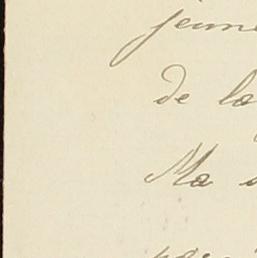 jeune
de la
Ma